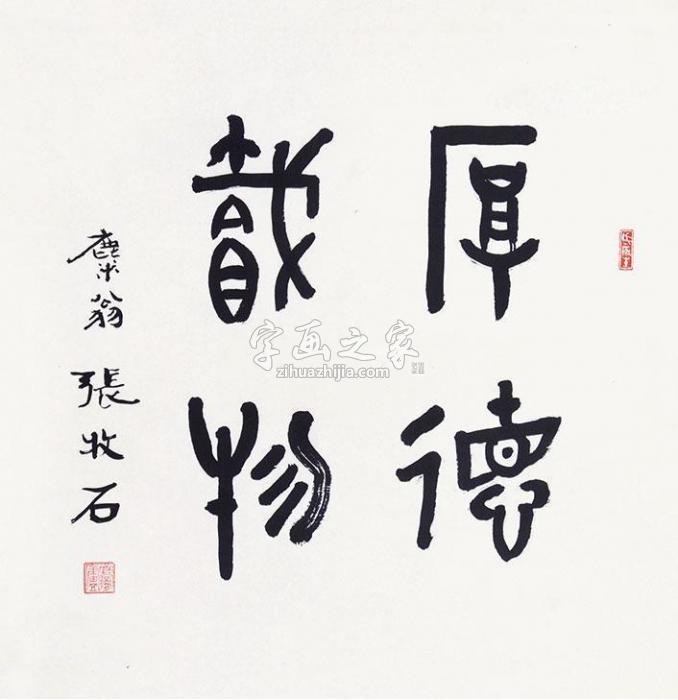 厚德
載物
麋翁 張牧石
字画之家
zihuazhijia.com